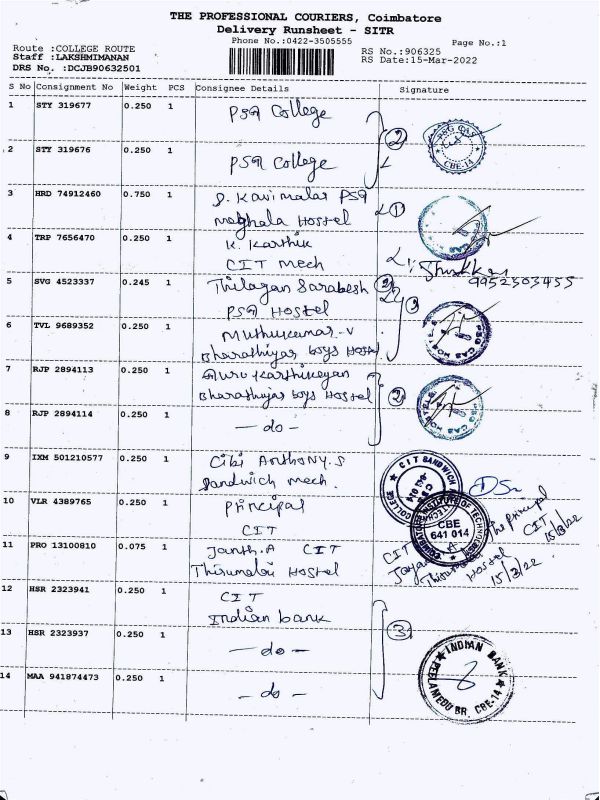 THE PROFESSIONAL COURIERS, Coimbatore
Delivery Runsheet - SITR
Phone No.:0422-3505555
Page No.:1
Route :COLLEGE ROUTE
RS No.:906325
Staff :LAKSHMIMANAN
RS Date:15-Mar-2022
DRS No. :DCJB90632501
S No Consignment No Weight PCS Consignee Details Signature
1 STY 319677 0.250 1 PSG College
2
PSG CAS
CBE-14
2 STY 319676 0.250 1 PSG College
3 HRD 74912460 0.750 1 S. Kavimalar PSG
Hostel
1
4 TRP 7656470 0.250 1 K. Karthik
CIT Mech
9952303455
5 SVG 4523337 0.245 1 Thilagan Sarabesh
PSG Hostel
2
6 TVL 9689352 0.250 1 Muthukumar-V
Bharathiyar boys Hostel
PSG CAS HOSTELS
7 RJP 2894113 0.250 1 Guru Karthikeyan
Bharathiyar boys Hostel
2
PSG CAS HOSTELS
8 RJP 2894114 0.250 1 - do -
9 IXM 501210577 0.250 1 Cibi Anthony.S
Sandwich mech.
CIT SANDWICH
COLLEGE
10 VLR 4389765 0.250 1 Principal
CIT
COIMBATORE INSTITUTE OF TECHNOLOGY
CBE
641 014
The Principal
CIT
15/3/22
11 PRO 13100810 0.075 1 Janth.A CIT
Thirumalai Hostel
CIT
Hostel
15/3/22
12 HSR 2323941 0.250 1 CIT
Indian bank
3
13 HSR 2323937 0.250 1 - do -
14 MAA 941874473 0.250 1 - do -
INDIAN BANK
PEELAMEDU BR. CBE-14